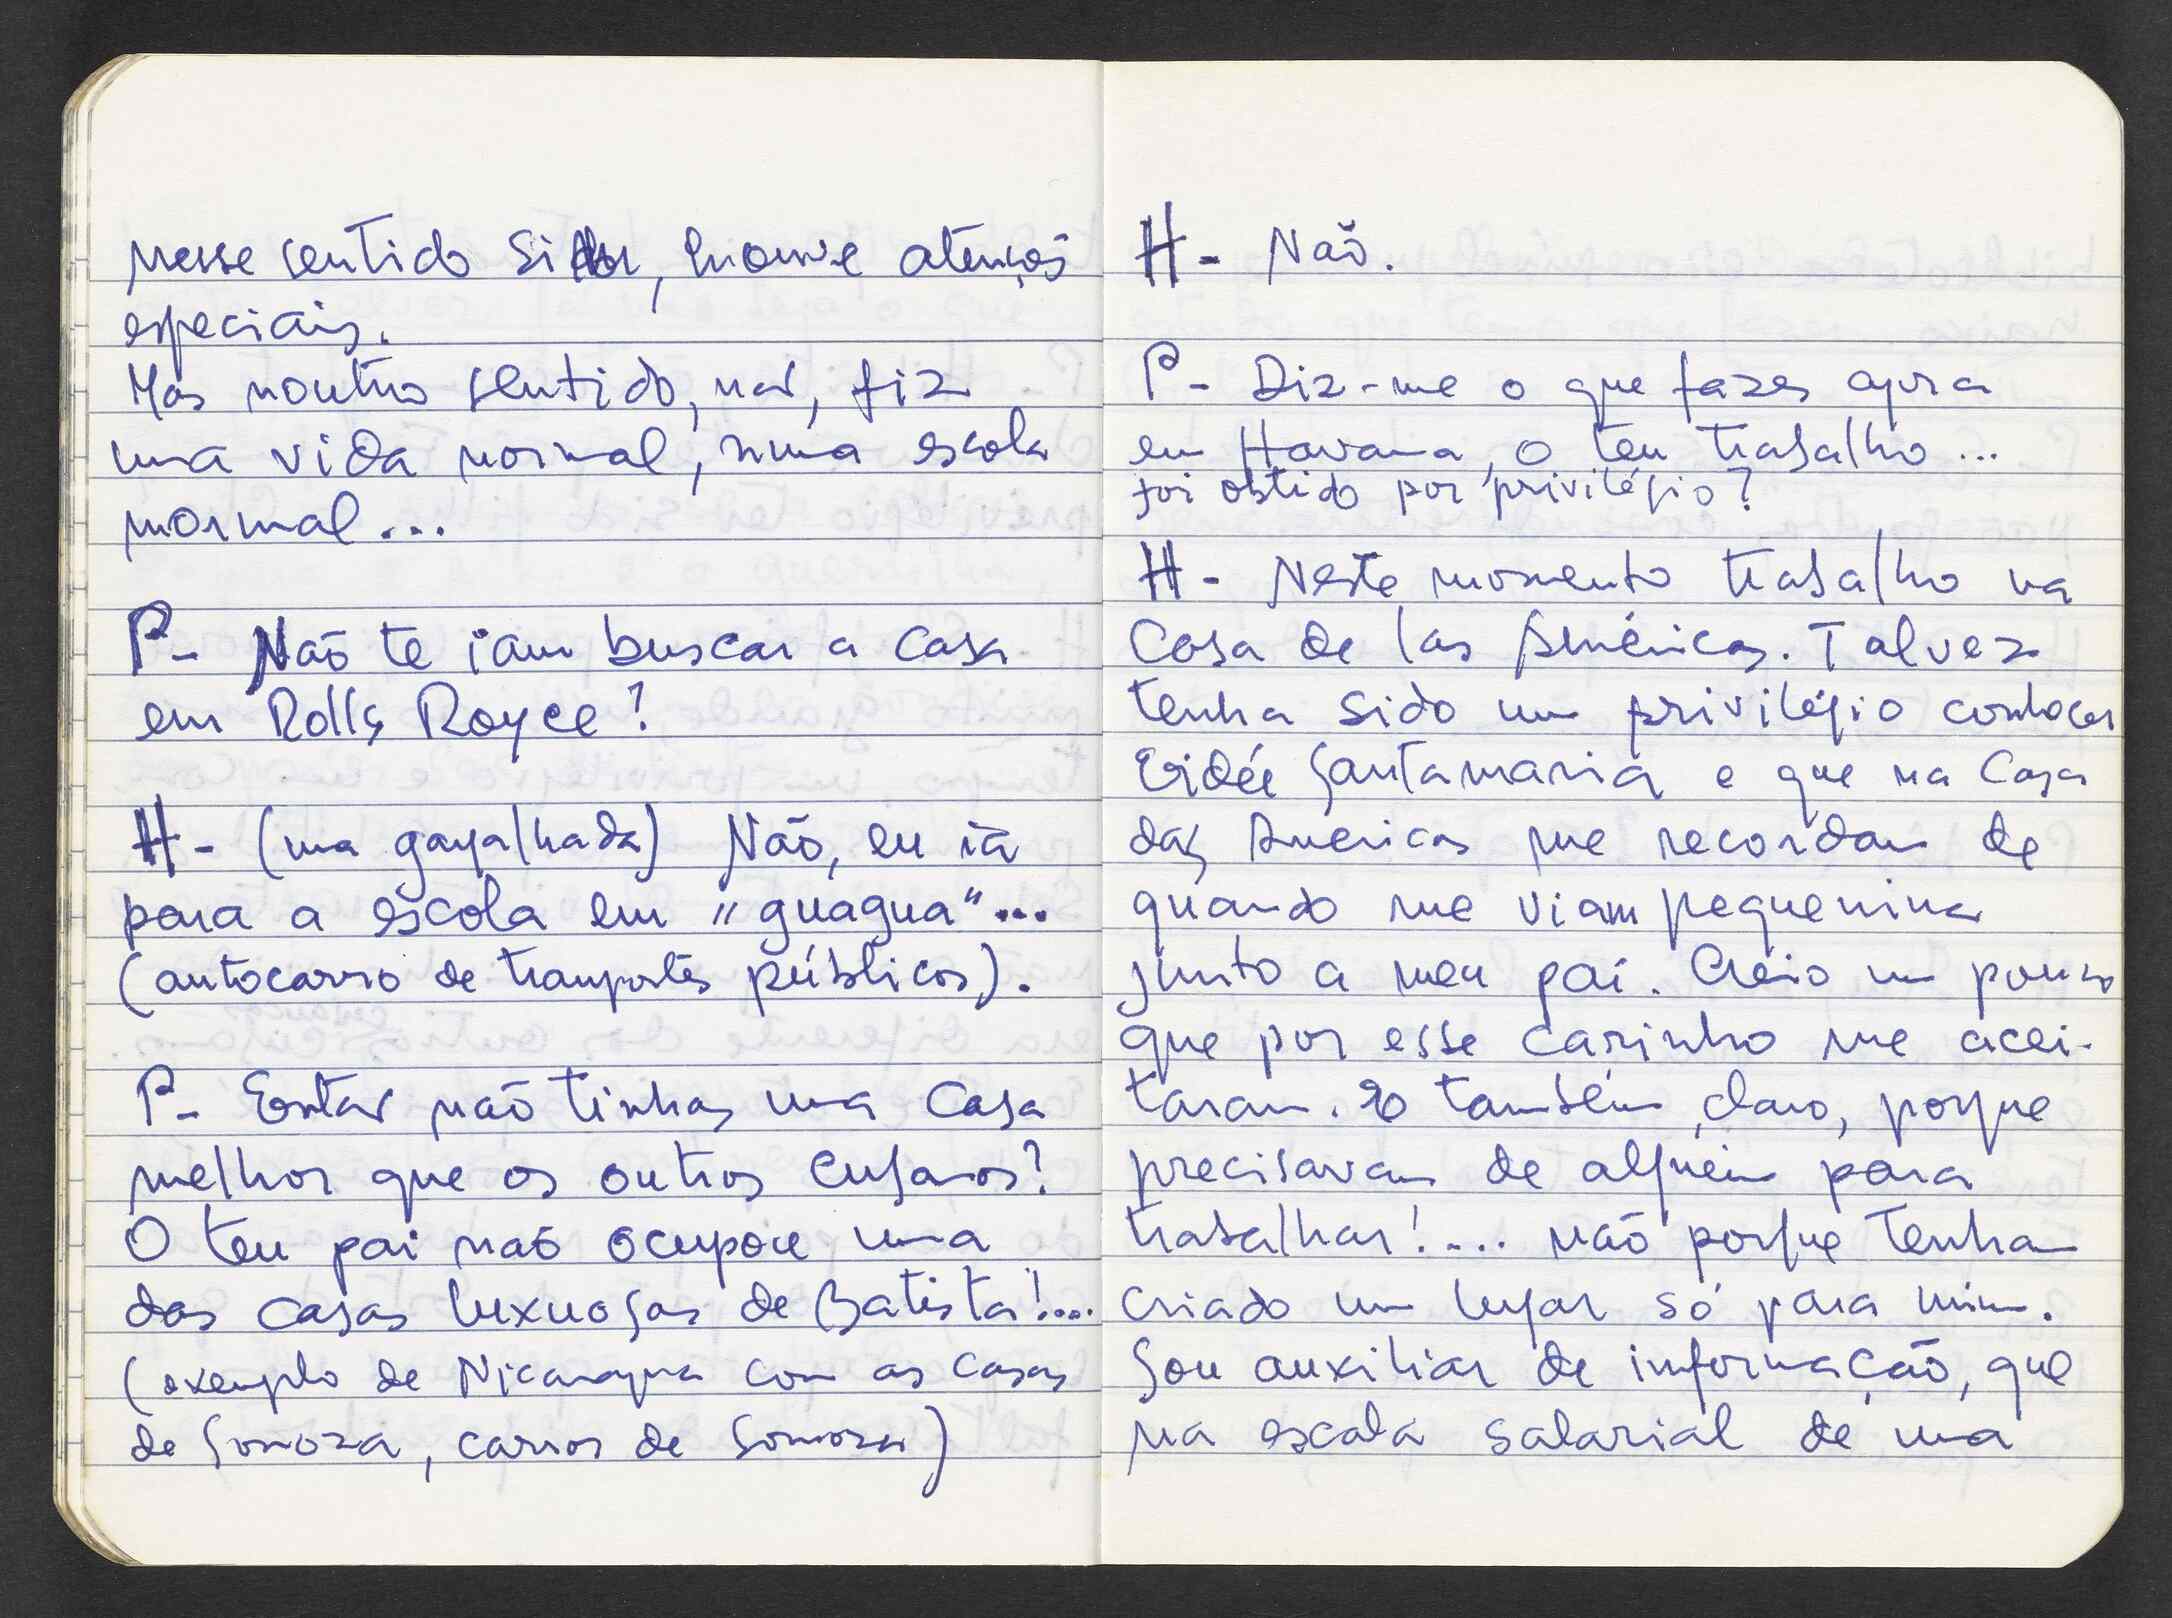 nesse sentido sim, houve atenções
especiais.
Mas noutro sentido, não, fiz
uma vida normal, numa escola
normal...
P- Não te iam buscar a casa
em Rolls Royce?
H- (uma gargalhada) Não, eu ia
para a escola em "guagua"...
(autocarro de transportes públicos).
P- Então não tinhas uma casa
melhor que os outros cubanos?
O teu pai não ocupou uma
das casas luxuosas de Batista!...
(exemplo de Nicaragua com as casas
de Somoza, carros de Somoza)
H- Não.
P- Diz-me o que fazes agora
em Havana, o teu trabalho...
foi obtido por privilégio?
H- Neste momento trabalho na
Casa de las Américas. Talvez
tenha sido um privilégio conhecer
Eidée Santamaria e que na Casa
das Americas me recordam de
quando me viam pequenina
junto a meu pai. Creio um pouco
que por esse carinho me acei-
taram. E também, claro, porque
precisavam de alguém para
trabalhar!.... não porque tenham
criado um lugar só para mim.
Sou auxiliar de informação, que
na escala salarial de uma